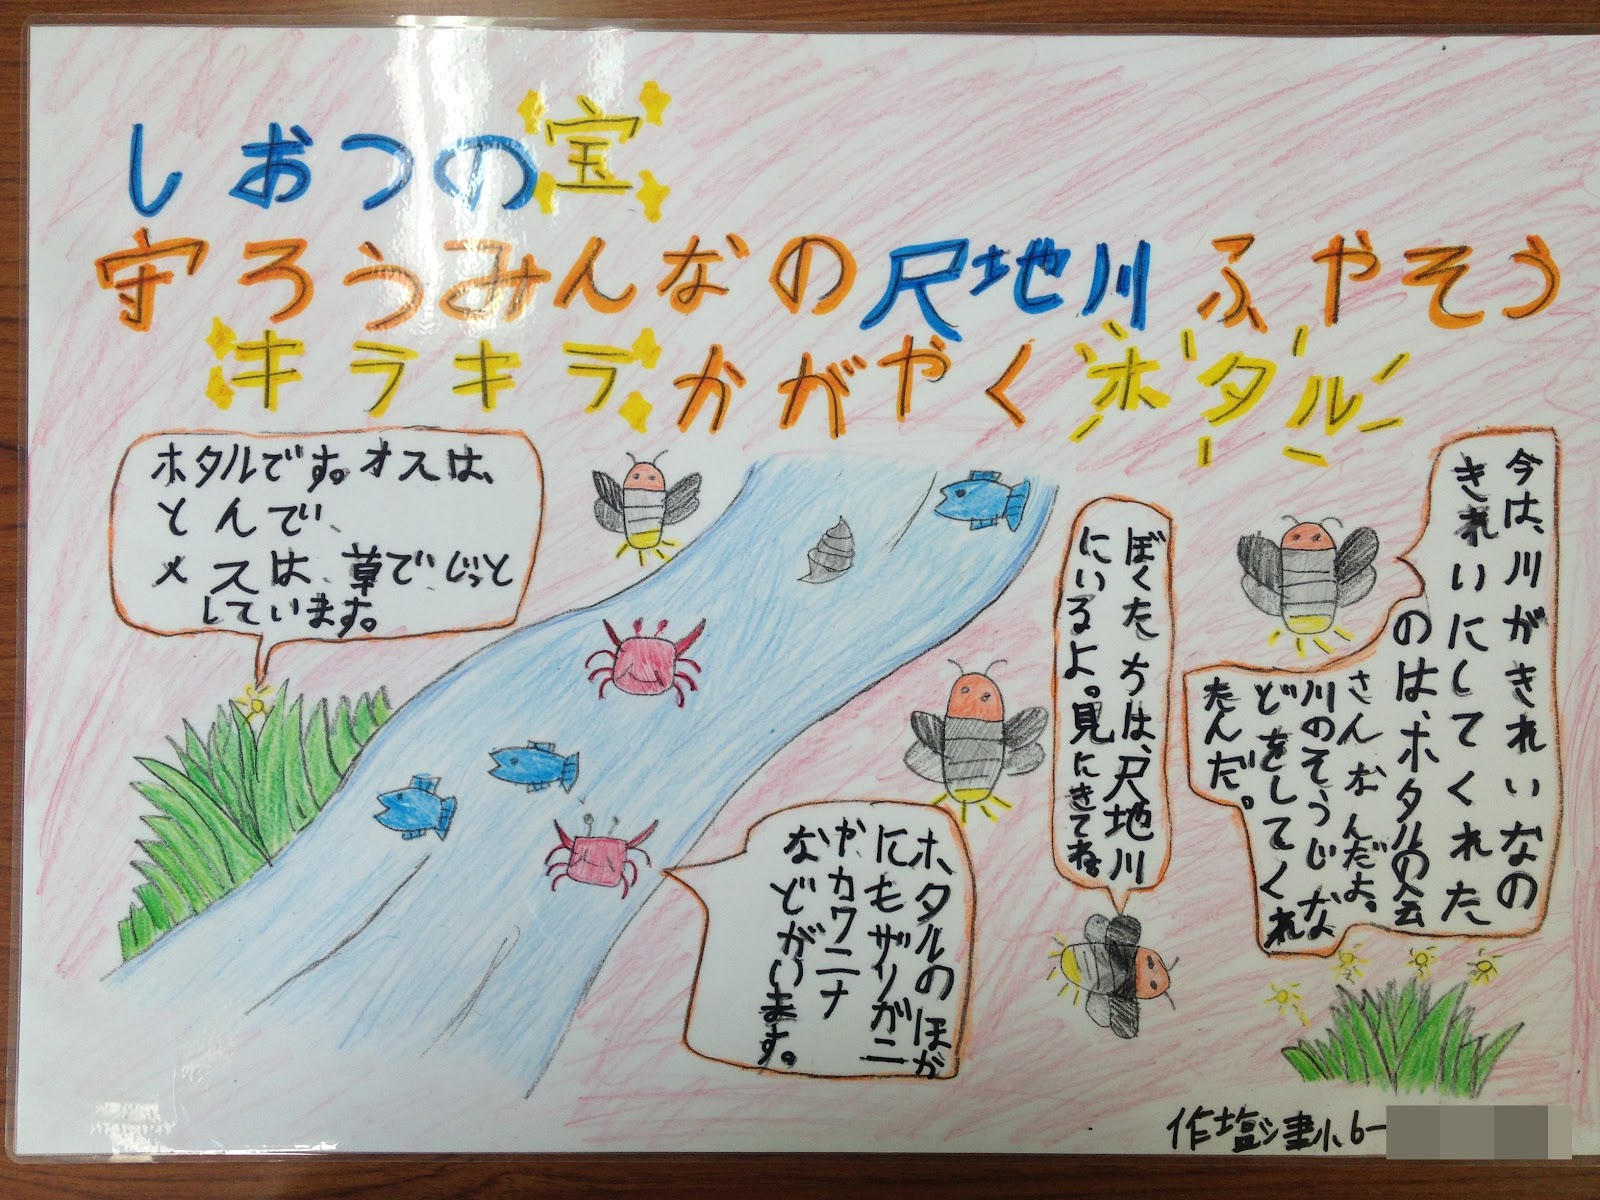 しおつの宝
守ろうみんなの尺地川ふやそう
キラキラかがやくホタル
ホタルです。オスは、
とんで、
メスは、草でじっと
しています。
今は、川がきれいなの
きれいにしてくれた
のは、ホタルの会
さんなんだよ。
川のそうじな
どをしてくれ
たんだ。
ぼくたちは、尺地川
にいるよ。見にきてね。
ホタルのほか
にもザリガニ
やカワニナ
などがいます。
作塩津小6-